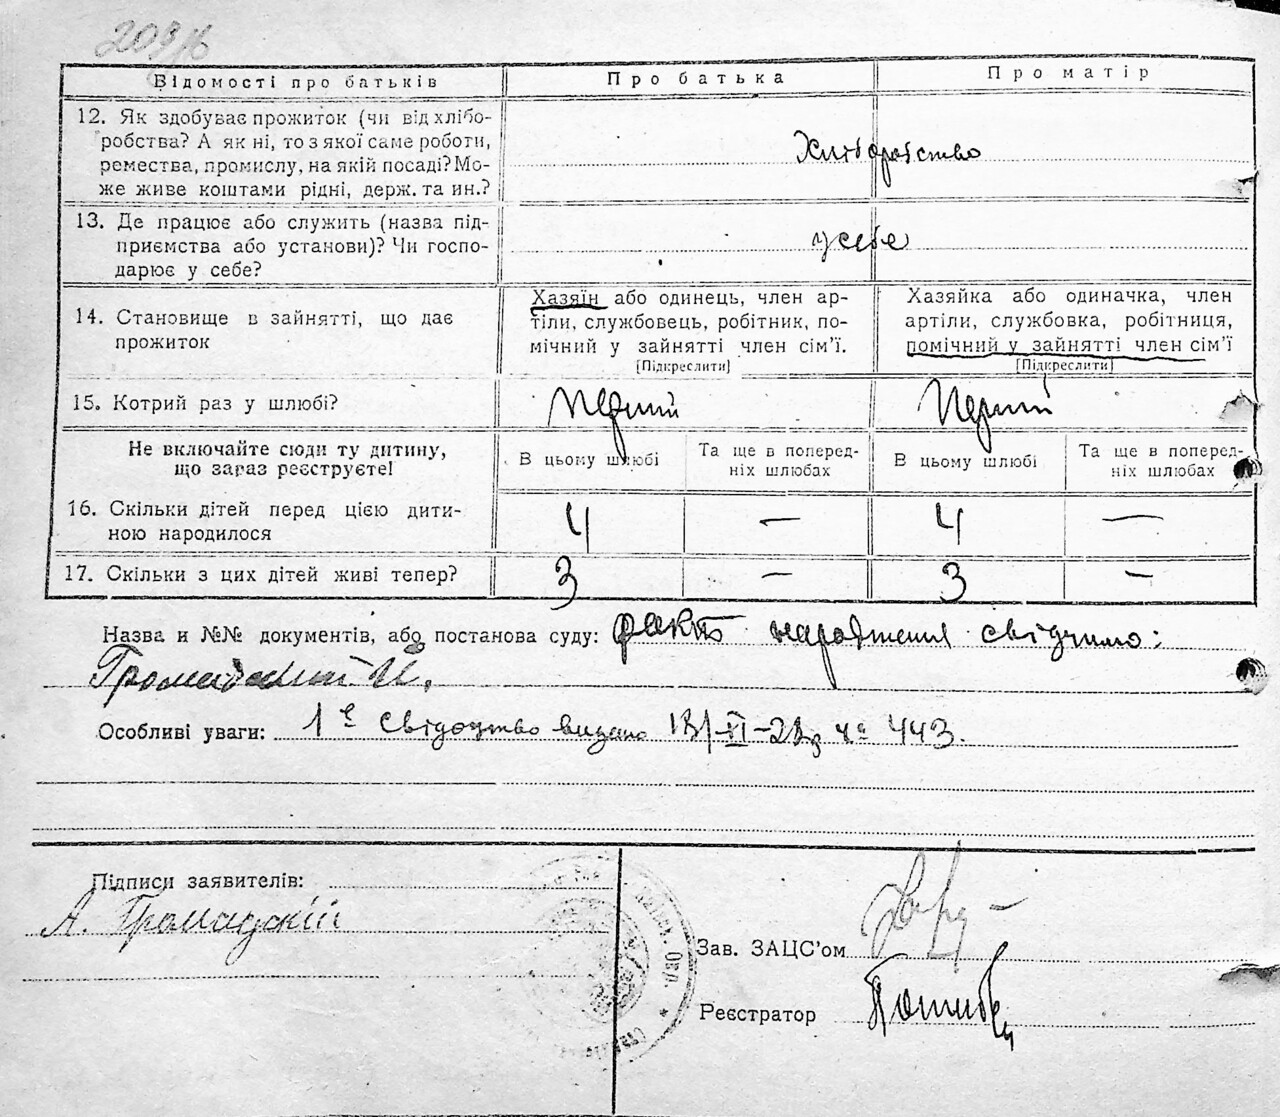 209/6
Відомості про батьків
Про батька
Про матір
12. Як здобуває прожиток (чи від хлібо-
робства? А як ні, то з якої саме роботи,
ремества, промислу, на якій посаді? Мо-
же живе коштами рідні, держ. та ин.?
Хліборобство
13. Де працює або служить (назва під-
приємства або установи)? Чи госпо-
дарює у себе?
у себе
14. Становище в зайнятті, що дає
прожиток
Хазяїн або одинець, член ар-
тіли, службовець, робітник, по-
мічний у зайнятті член сім’ї.
[Підкреслити]
Хазяйка або одиначка, член
артіли, службовка, робітниця,
помічний у зайнятті член сім’ї
[Підкреслити]
15. Котрий раз у шлюбі?
Перший
Перший
Не включайте сюди ту дитину,
що зараз реєструєте!
В цьому шлюбі
Та ще в поперед-
ніх шлюбах
В цьому шлюбі
Та ще в поперед-
ніх шлюбах
16. Скільки дітей перед цією дити-
ною народилося
4 — 4 —
17. Скільки з цих дітей живі тепер?
3 — 3 —
Назва и №№ документів, або постанова суду: факт народження свідчимо:
Громадский И.
Особливі уваги: 1 е Свідоцтво видано № 443.
Підписи заявителів:
А. Громадскій
Зав. ЗАЦС’ом
Реєстратор